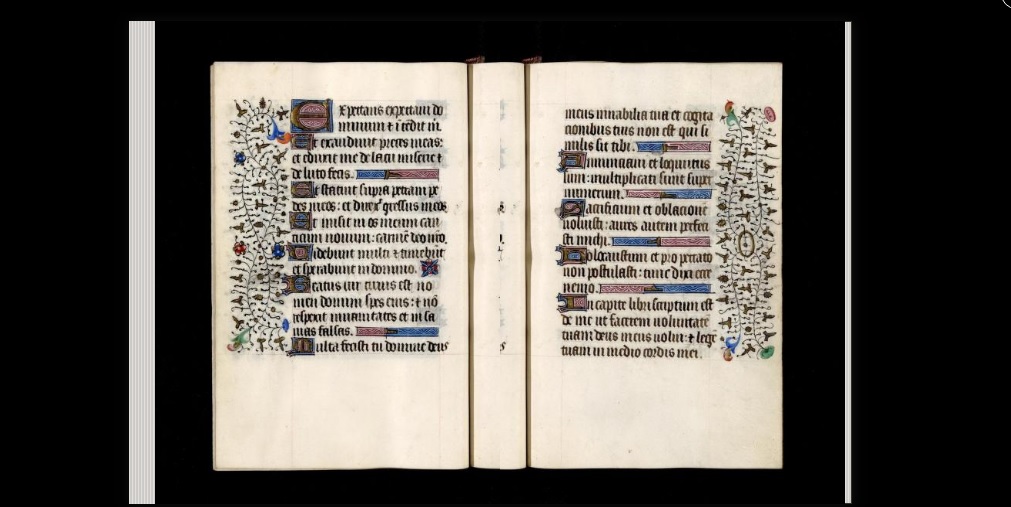 Expectans expectavi do
minum & i tēdit m̄.
Et exaudivit preces meas:
et eduxit me de lacu miserie &
de luto fecis.
Et statuit supra petram pe
des meos: et direxͭ gressus meos
Et inmisit in os meum can
ticum novum: carmē deo nr̄o.
Videbunt multi & timebūt
et sperabunt in domino.
Beatus vir cuius est no
men domini spes eius: & nō
respexit in vanitates et in sa
nias falsas.
Multa fecisti tu domine deus
meus mirabilia tua et cogita
tionibus tuis non est qui si
milis sit tibi.
Annunciavi et loquutus
sum: multiplicati sunt supra
numerum.
Sacrificium et oblacionē
noluisti: aures autem perfeci
sti michi.
Holocaustum et pro peccato
non postulasti: tunc dixi ecce
venio.
In capite libri scriptum est
de me ut facerem voluntatē
tuam deus meus volui: & legē
tuam in medio cordis mei.